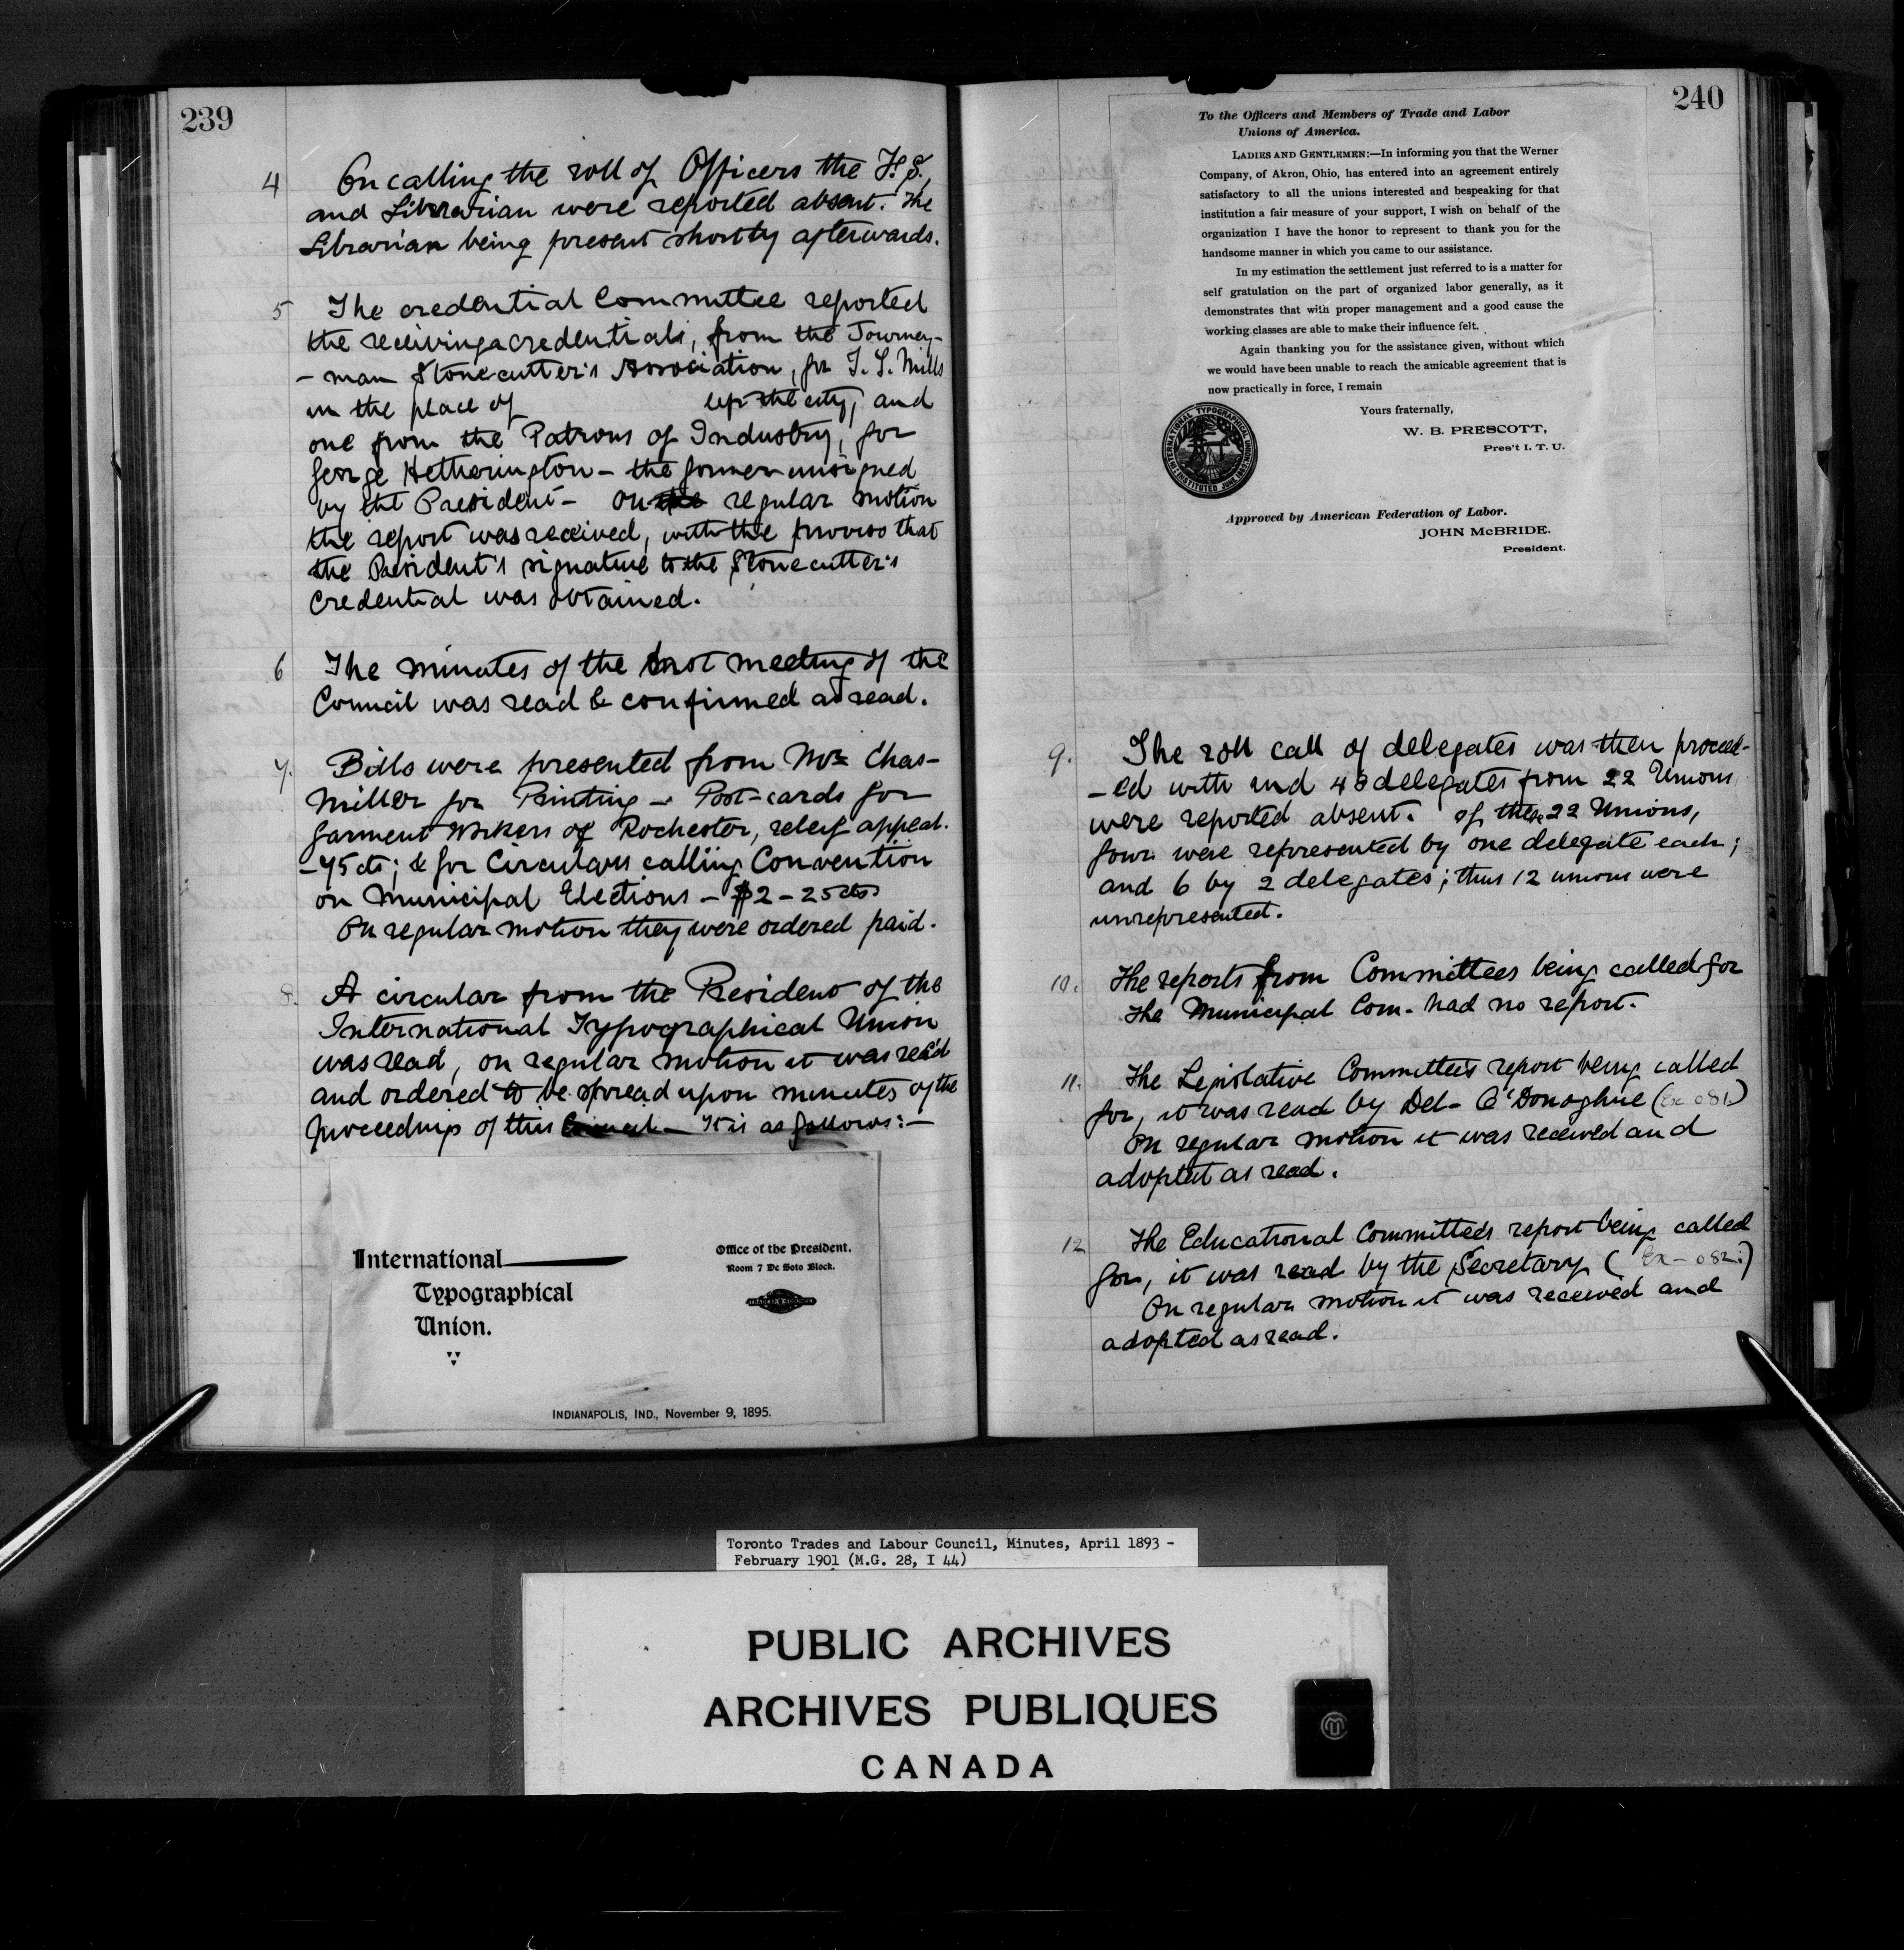 239
4 On calling the roll of Officers the F. S.,
and Librarian were reported absent. The
Librarian being present shortly afterwards.
5 The credential Committee reported
the receiving a credentials, from the Journey-
- man Stonecutter's Association, for T. S. Mills
in the place of left the city, and
one from the Patrons of Industry, for
George Hetherington - the former unsigned
by the President - On the regular motion
the report was received, with the proviso that
the President's signature to the Stonecutter's
Credential was obtained.
6 The minutes of the last meeting of the
Council was read & confirmed as read.
7. Bills were presented from Mr Chas-
Miller for Printing - Post-cards for
Garment Workers of Rochester, releif appeal.
- 75 cts; & for Circulars calling Convention
on Municipal Elections - $2 - 25 cts
On regular motion they were ordered paid.
8. A circular from the President of the
International Typographical Union
was read, on regular motion it was rec'd
and ordered to be spread upon minutes of the
proceedings of this Council - It is as follows: -
International
Typographical
Union.
Office of the President.
Room 7 De Soto Block.
INDIANAPOLIS, IND., November 9, 1895.
240
To the Officers and Members of Trade and Labor
Unions of America.
LADIES AND GENTLEMEN:—In informing you that the Werner
Company, of Akron, Ohio, has entered into an agreement entirely
satisfactory to all the unions interested and bespeaking for that
institution a fair measure of your support, I wish on behalf of the
organization I have the honor to represent to thank you for the
handsome manner in which you came to our assistance.
In my estimation the settlement just referred to is a matter for
self gratulation on the part of organized labor generally, as it
demonstrates that with proper management and a good cause the
working classes are able to make their influence felt.
Again thanking you for the assistance given, without which
we would have been unable to reach the amicable agreement that is
now practically in force, I remain
Yours fraternally,
W. B. PRESCOTT,
Pres't I. T. U.
Approved by American Federation of Labor.
JOHN McBRIDE.
President.
9. The roll call of delegates was then proceed-
- ed with and 43 delegates from 22 Unions
were reported absent. Of these 22 Unions,
four were represented by one delegate each;
and 6 by 2 delegates; thus 12 unions were
unrepresented.
10. The reports from Committees being called for
the Municipal Com. had no report.
11. The Legislative Committee's report being called
for, it was read by Del- O'Donoghue (Ex 081)
On regular motion it was received and
adopted as read.
12 The Educational Committee's report being called
for, it was read by the Secretary (Ex - 082.)
On regular motion it was received and
adopted as read.
Toronto Trades and Labour Council, Minutes, April 1893 -
February 1901 (M.G. 28, I 44)
PUBLIC ARCHIVES
ARCHIVES PUBLIQUES
CANADA